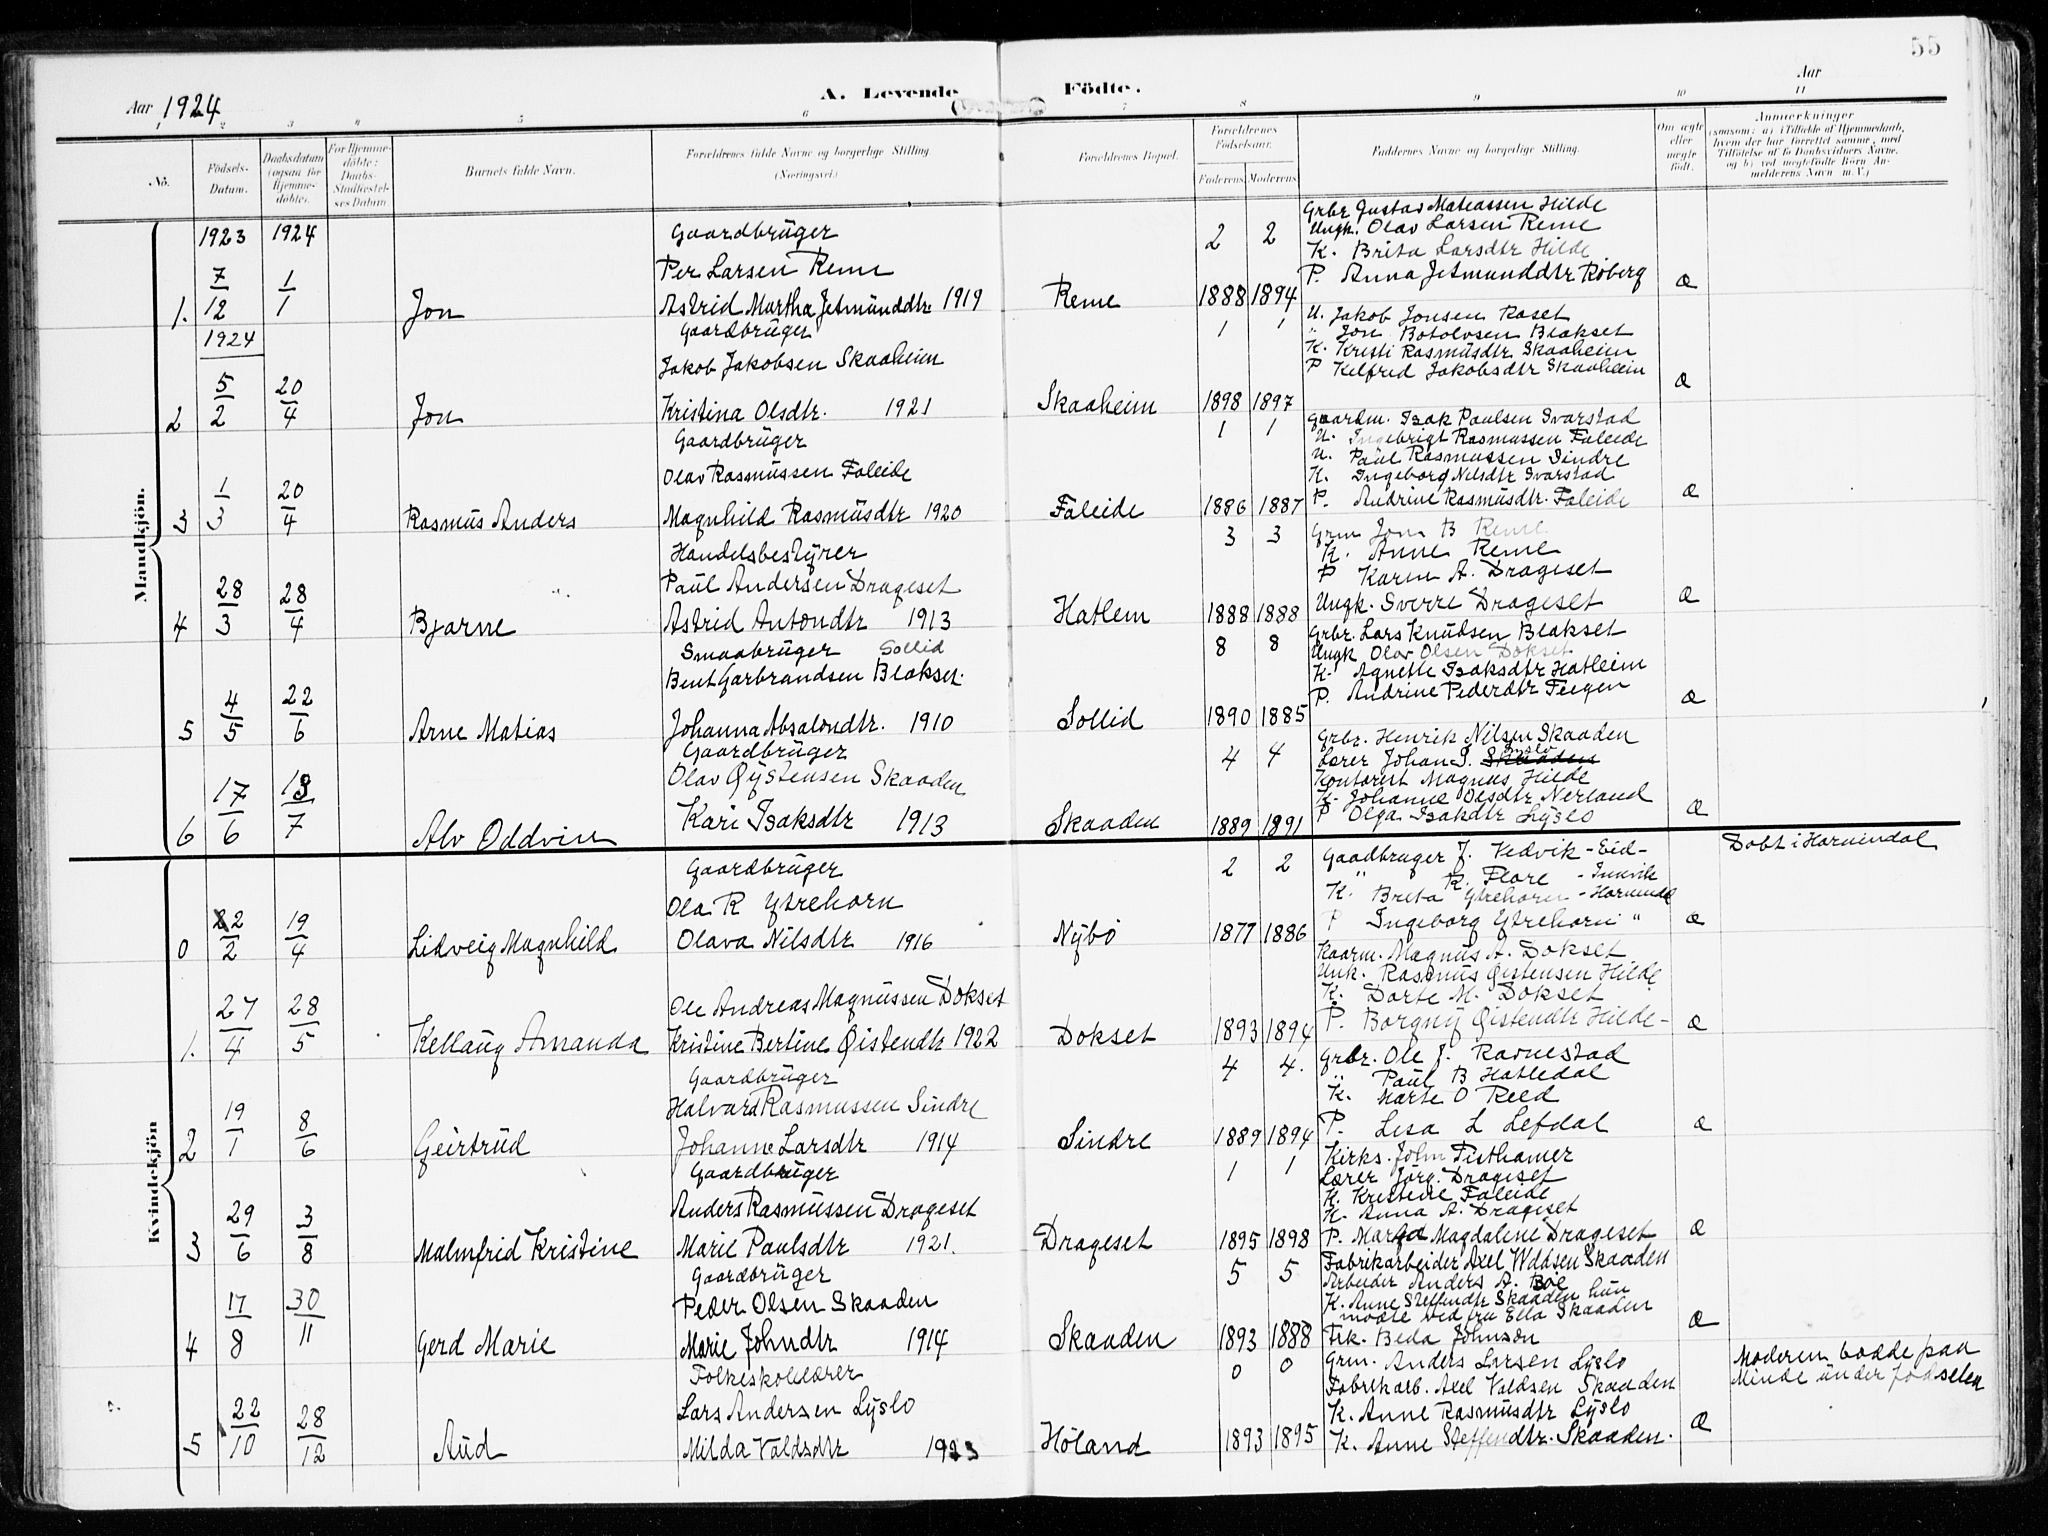 55
Aar 1924
A. Levende Födte.
Aar
1 2 3 4 5 6 7 8 9 10 11
No.
Födsels-Datum.
Daabsdatum (ogsaa for Hjemme-döbte).
For Hjemme-döbte: Daabs-Stadfæstelses Datum.
Barnets fulde Navn.
Forældrenes fulde Navne og borgerlige Stilling. (Næringsvei.)
Forældrenes Bopæl.
Forældrenes Födselsaar.
Faderens. Moderens.
Faddernes Navne og borgerlige Stilling.
Om ægte eller uægte födt.
Anmærkninger
(saasom: a) i Tilfælde af Hjemmedaab, hvem der har forrettet samme, med Tilföielse af to Daabsvidners Navne, og b) ved uægtefödte Börn Anmelderens Navn m. V.)
Mandkjön.
1923 1924
1. 7/12 1/1 Jon
Gaardbrüger
Per Larsen Reme
Astrid Martha Jetmünddtr 1919
Reme
2 2
1888 1894
Grbr Gustav Mateassen Hilde
Ungk. Olav Larsen Reme
K. Brita Larsdtr Hilde
P. Anna Jetmunddtr Röberg
Æ
1924
2 5/2 20/4 Jon
Gaardbrüger
Jakob Jakobsen Skaaheim
Kristina Olsdtr. 1921
Skaaheim
1 1
1898 1897
U. Jakob Jonsen Roset
" Jon Botolvsen Blakset
K. Kristi Rasmüsdtr Skaaheim
P Kelfrid Jakobsdtr Skaaheim
Æ
3 1/3 20/4 Rasmüs Anders
Gaardbrüger
Olav Rasmüssen Faleide
Magnhild Rasmüsdtr 1920
Faleide
1 1
1886 1887
Gaardm. Isak Paulsen Svarstad
U. Ingebrigt Rasmussen Faleide
U. Paul Rasmussen Sindre
K. Ingeborg Nilsdtr Svarstad
P. Andrine Rasmüsdtr. Faleide
Æ
4 28/3 28/4 Bjarne
Handelsbestyrer
Paül Andersen Drageset
Astrid Antondtr 1913
Hatlem
3 3
1888 1888
Grm Jon B Reme
K. Anne Reme
P Karen A. Drageset
Ungk. Sverre Drageset
Æ
5 4/5 22/6 Arne Matias
Smaabrüger Sollid
Bent Garbrandsen Blakset
Johanna Absalondtr. 1910
Sollid
8 8
1890 1885
Grbr. Lars Knüdsen Blakset
Ungk Olav Olsen Dokset
K. Agnette Isaksdtr Hatleim
P. Andrine Pederdtr Feegen
Æ
6 17/6 13/7 Alv Oddvin
Gaardbrüger
Olav Øystensen Skaaden
Kari Isaksdtr 1913
Skaaden
4 4
1889 1891
Grbr. Henrik Nilsen Skaaden
Lærer Johan I. Skaaden Lyslo
Kontorist Magnus Hilde
K. Johanne Olsdtr Nerland
P Olga Isakdtr Lyslo
Æ
Kvindekjön
0 22/2 19/4 Lidveig Magnhild
Gaardbrüger
Ola R Ytrehorn
Olava Nilsdtr 1916
Nybö
2 2
1877 1886
Gaadbruger J. Vedvik - Eid-
" R. Flore - Innvik
K. Brita Ytrehorn - Hornindal
P Ingeborg Ytrehorn "
Æ
Döbt i Hornindal
1. 27/4 28/5 Kellaug Amanda
Ole Andreas Magnüssen Dokset
Kristine Bertine Øistendtr 1922
Dokset
1893 1894
Kaarm. Magnus A. Dokset
Unk. Rasmus Øistensen Hilde
K. Dorte M. Dokset
P. Borgny Øistendtr Hilde-
Æ
2 19/1 8/6 Geirtrüd
Gaardbrüger
Halvard Rasmussen Sindre
Johanne Larsdtr 1914
Sindre
4 4.
1889 1894
Grbr. Ole J. Ravnestad
" Paul B Hatledal
K. Marte O Reed
P. Lisa L Lefdal
Æ
3 29/6 3/8 Malmfrid Kristine
Gaardbrüger
Anders Rasmüssen Drageset
Marie Paulsdtr 1921.
Drageset
1 1
1895 1898
Kirks. John Fisthamer
Lærer Jörg. Drageset
K. Kristine Faleide
K. Anna A. Drageset
P. Magdalene Drageset
Æ
4 17/8 30/11 Gerd Marie
Gaardbrüger
Peder Olsen Skaaden
Marie Johndtr 1914
Skaaden
5 5
1893 1888
Fabrikarbeider Axel Valdsen Skaaden
Arbeider Anders A. Boe
K. Anne Steffendtr Skaaden hün
mödte ved fru Ella Skaaden
Frk. Beda Johnson
Æ
5 22/10 28/12 Aüd
Folkeskolelærer
Lars Andersen Lyslo
Milda Valdsdtr 1923
Höland
0 0
1893 1895
Grm. Anders Larsen Lyslo
Fabrikarb. Axel Valdsen Skaaden
K. Anne Rasmüsdtr Lyslo
K. Anne Steffendtr. Skaaden.
Æ
Moderen bodde paa
Minde ünder födselen